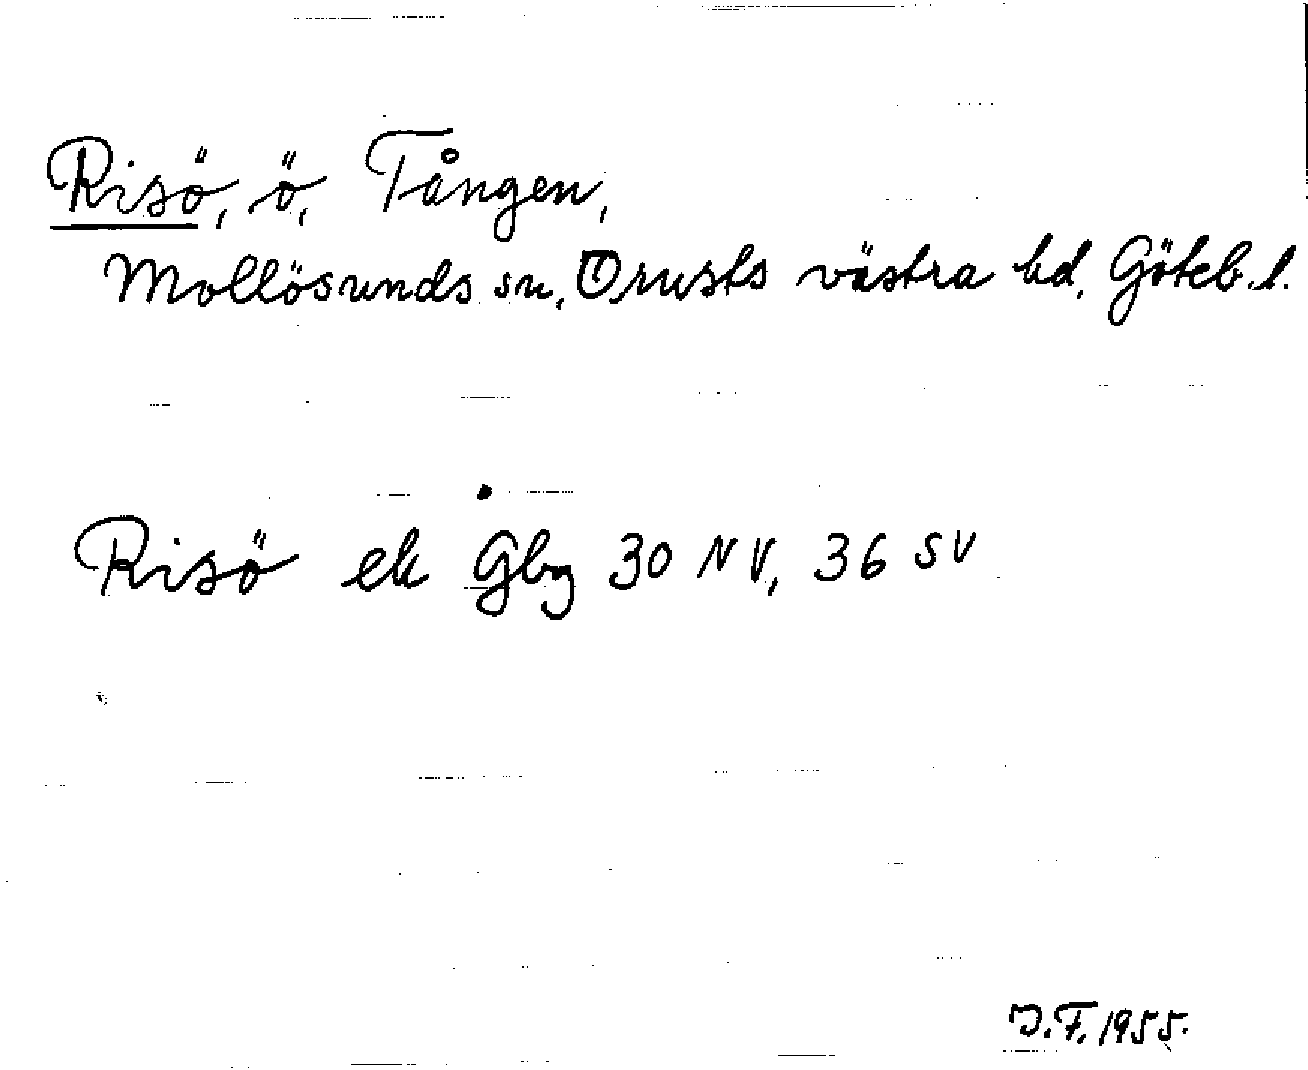 Risö, ö, Tången,
Mollösunds sn, Orusts västra hd, Göteb. l.
Risö ek Gbg 30 NV, 36 SV
J.F. 1955.